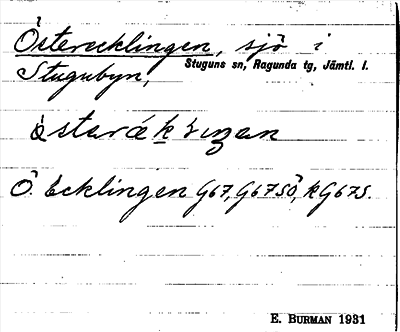 Österecklingen, sjö i
Stugubyn,
Stuguns sn, Ragunda tg, Jämtl. l.
Ö Ecklingen G67, G67SÖ, kG67S.
E. BURMAN 1931